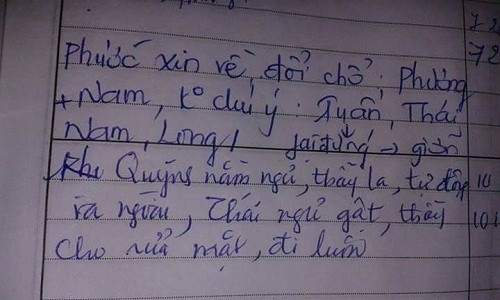 72
Phước xin về, đổi chỗ: Phương 72
+ Nam, k° chú ý: Tuấn, Thái
Nam, Long,
khi Quỳnh nằm ngủ, thầy la, tự động 10
ra ngoài, Thái ngủ gật, thầy 10
cho rửa mặt, đi luôn